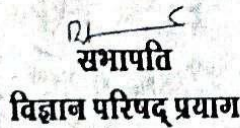 सभापति
विज्ञान परिषद् प्रयाग